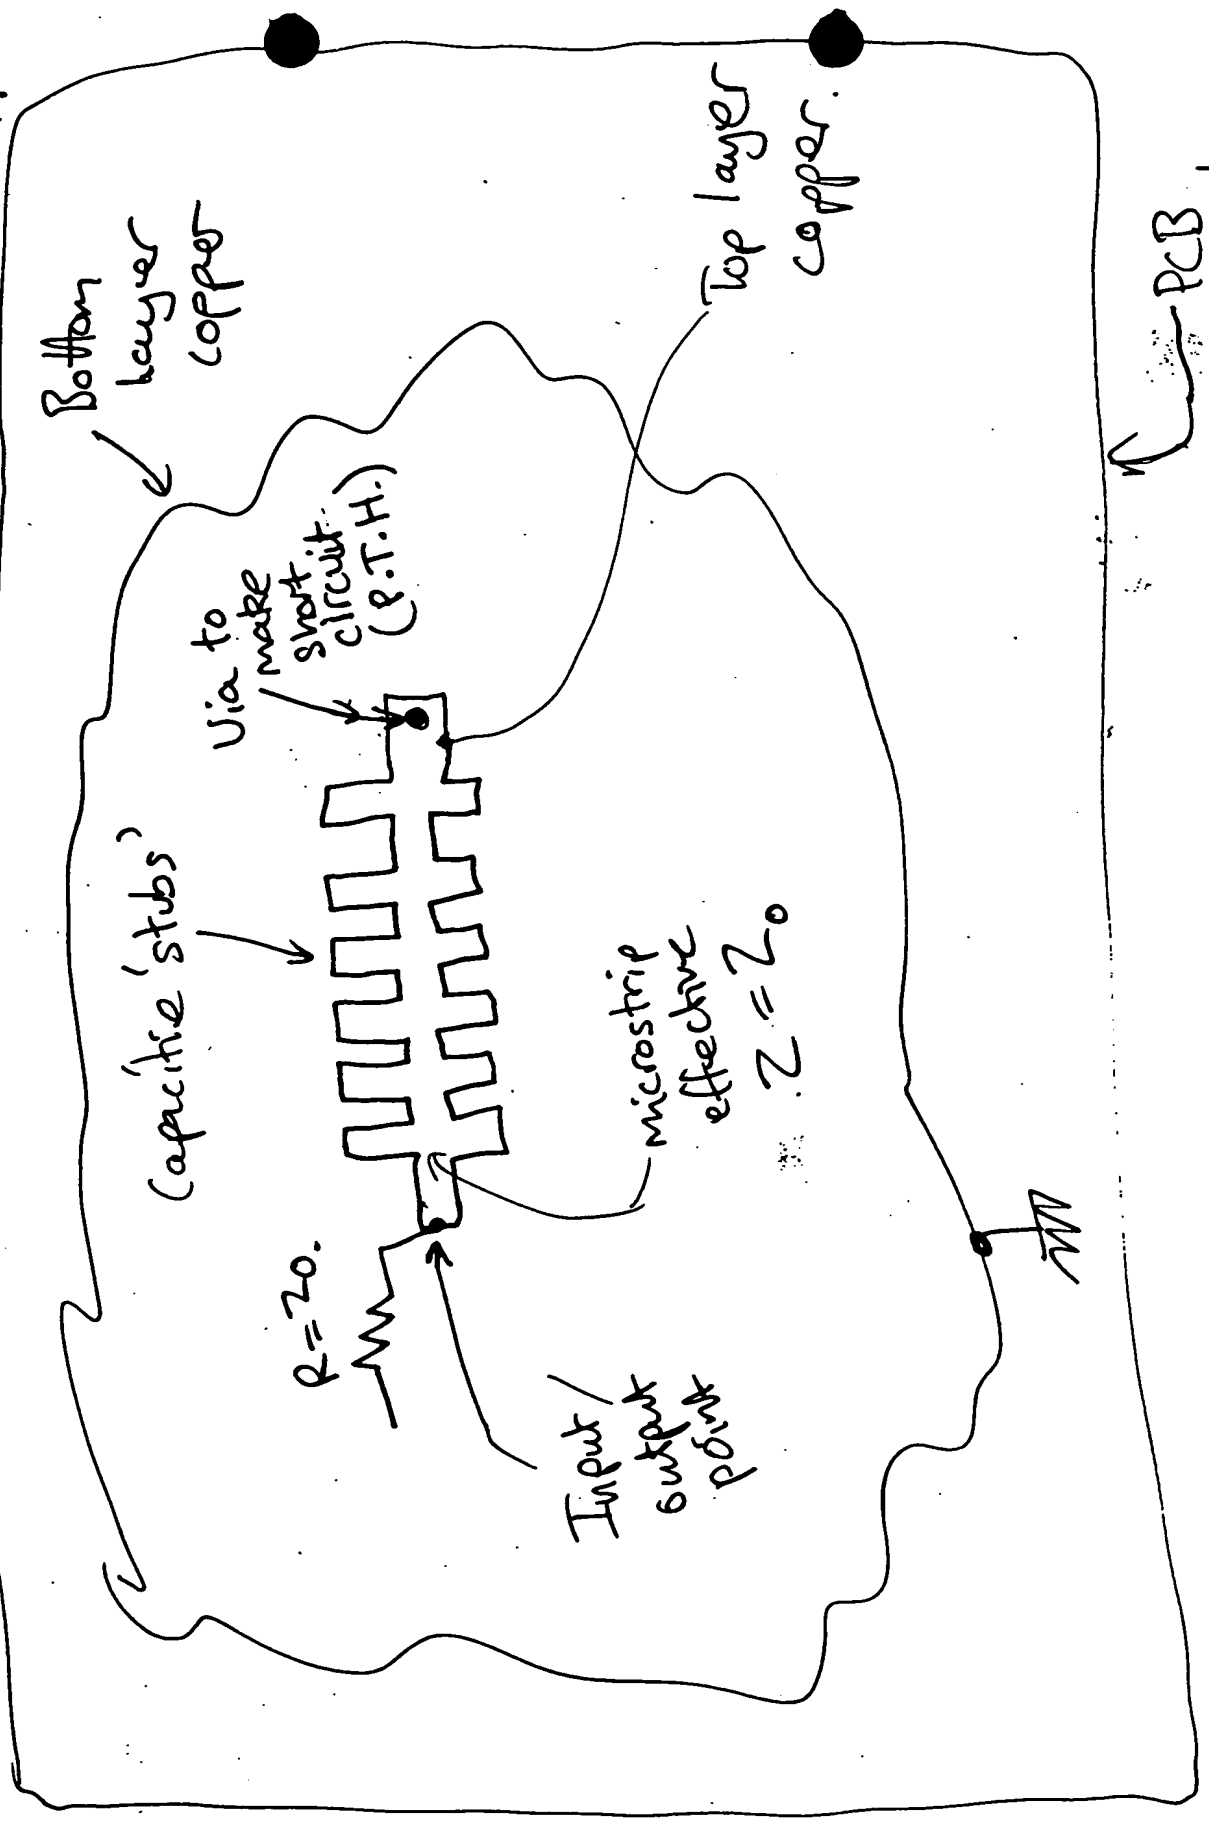 Bottom
Layer
copper
Top layer
copper.
PCB
Via to
make
short
circuit
(P.T.H.)
Capacitie 'stubs'
microstrip
effective
Z = Zo
R = Zo.
Input /
output
point